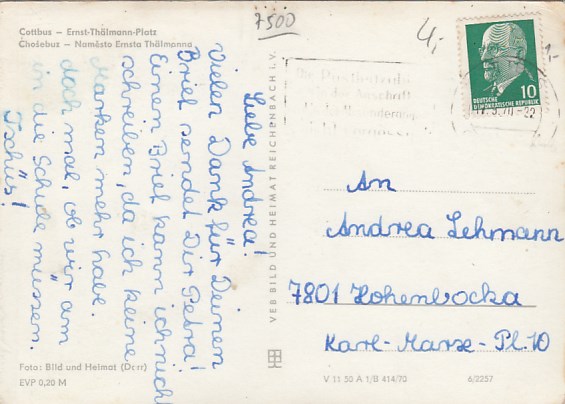 Cottbus — Ernst-Thälmann-Platz
Chośebus — Naměsto Ernsta Thälmanna
7500
4,-
1,-
10
DEUTSCHE
DEMOKRATISCHE REPUBLIK
Liebe Andrea!
Vielen Dank für Deinen
Brief sendet Dir Petra!
Einen Brief kann ich nicht
schreiben, da ich keine
Marken mehr habe.
doch mal, ob wir am
in die Schule müssen.
Tschüs!
VEB BILD UND HEIMAT REICHENBACH i. V.
An
Andrea Lehmann
7801 Hohenbocka
Karl-Marx-Pl. 10
Foto: Bild und Heimat (Dorr)
EVP 0,20 M
V 11 50 A 1/B 414/70
6/2257